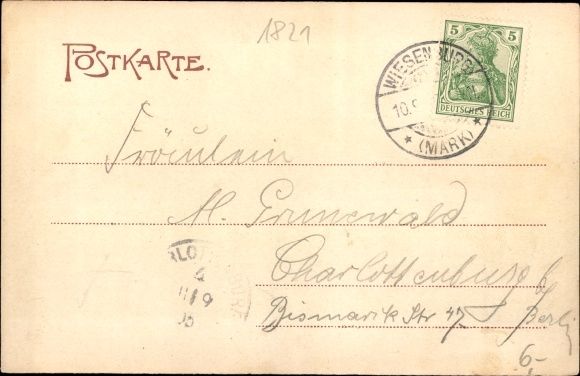 1821
POSTKARTE.
5 5
DEUTSCHES REICH
WIESENBURG
10.9
* (MARK) *
Fräulein
M. Grunewald
Charlottenburg
Bismarck Str 47 Berlin
RLOTT
4
11/9
05
6,-